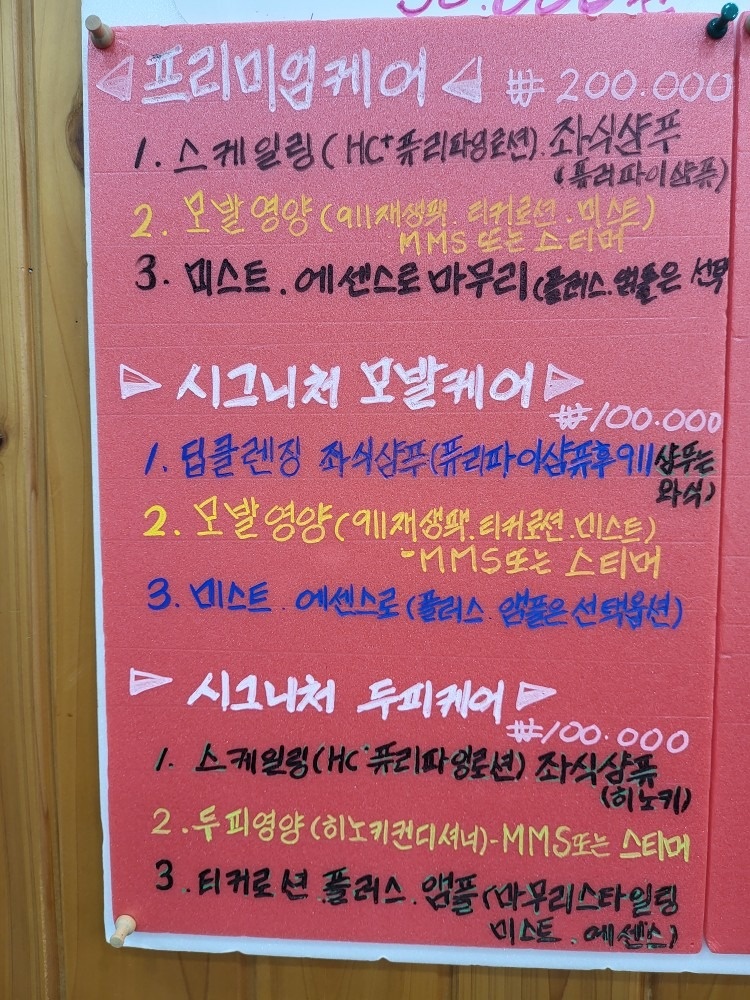 프리미엄케어 ₩ 200.000
1. 스케일링(HC+퓨리파잉로션). 좌식샴푸
(퓨리파이샴퓨)
2. 모발영양(911재생팩. 티커로션. 미스트)
MMS 또는 스티머
3. 미스트. 에센스로 마무리(플러스. 앰플은 선택
시그니처 모발케어
₩100.000
1. 딥클렌징 좌식샴푸(퓨리파이샴퓨후911샴푸는
와식)
2. 모발영양(911재생팩. 티커로션. 미스트)
-MMS또는 스티머
3. 미스트. 에센스로(플러스. 앰플은선택옵션)
시그니처 두피케어
₩100.000
1. 스케일링(HC+퓨리파잉로션) 좌식샴퓨
(히노키)
2. 두피영양(히노키컨디셔너)-MMS또는 스티머
3. 티커로션.플러스.앰플(마무리스타일링
미스트. 에센스)